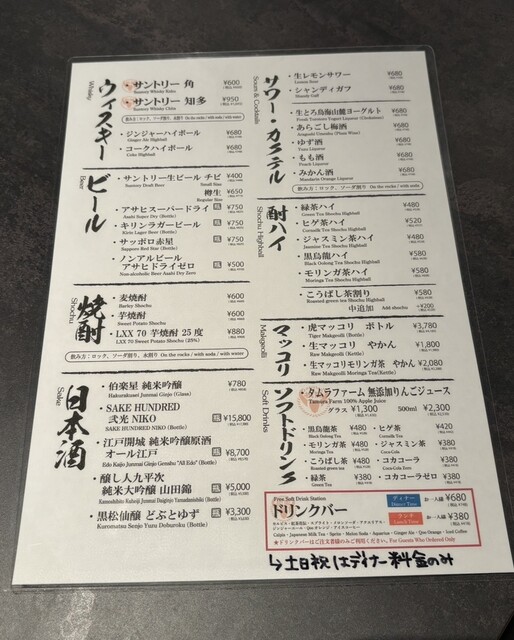 ウィスキー
Whisky
サントリー 角 ¥600
Suntory Whisky Kaku
サントリー 知多 ¥950
Suntory Whisky Chita
・ジンジャーハイボール ¥680
Ginger Ale Highball
・コークハイボール ¥680
Coke Highball
ビール
Beer
・サントリー生ビール チビ ¥400
Suntory Draft Beer Small Size
樽生 ¥650
Regular Size
・アサヒスーパードライ 瓶 ¥750
Asahi Super Dry (Bottle)
・キリンラガービール 瓶 ¥750
Kirin Lager Beer (Bottle)
・サッポロ赤星 瓶 ¥750
Sapporo Red Star (Bottle)
・ノンアルビール
アサヒドライゼロ 瓶 ¥500
Non-alcoholic Beer Asahi Dry Zero
焼酎
Shochu
・麦焼酎 ¥600
Barley Shochu
・芋焼酎 ¥600
Sweet Potato Shochu
・LXX 70 芋焼酎 25 度 ¥880
LXX 70 Sweet Potato Shochu (25%)
飲み方：ロック、ソーダ割り、水割り On the rocks / with soda / with water
日本酒
Sake
・伯楽星 純米吟醸 ¥780
Hakurakusei Junmai Ginjo (Glass)
・SAKE HUNDRED
弐光 NIKO 瓶 ¥15,800
SAKE HUNDRED NIKO (Bottle)
・江戸開城 純米吟醸原酒
オール江戸 瓶 ¥8,700
Edo Kaijo Junmai Ginjo Genshu "All Edo" (Bottle)
・醸し人九平次
純米大吟醸 山田錦 瓶 ¥5,000
Kamoshibito Kuheiji Junmai Daiginjo Yamadanishiki (Bottle)
・黒松仙醸 どぶとゆず 瓶 ¥3,300
Kuromatsu Senjo Yuzu Doburoku (Bottle)
サワー・カクテル
Sours & Cocktails
・生レモンサワー ¥680
Lemon Sour
・シャンディガフ ¥680
Shandy Gaff
・生とろ鳥海山麓ヨーグルト ¥680
・あらごし梅酒 ¥680
Aragoshi Umeshu (Plum Wine)
・ゆず酒 ¥680
Yuzu Liqueur
・もも酒 ¥680
Peach Liqueur
・みかん酒 ¥680
Mandarin Orange Liqueur
飲み方：ロック、ソーダ割り On the rocks / with soda
酎ハイ
Shochu Highball
・緑茶ハイ ¥480
Green Tea Shochu Highball
・ヒゲ茶ハイ ¥520
Cornsilk Tea Shochu Highball
・ジャスミン茶ハイ ¥480
Jasmine Tea Shochu Highball
・黒烏龍ハイ ¥580
Black Oolong Tea Shochu Highball
・モリンガ茶ハイ ¥580
Moringa Tea Shochu Highball
・こうばし茶割り ¥580
Roasted green tea Shochu Highball
中追加 Add shochu ¥200
マッコリ
Makgeolli
・虎マッコリ ボトル ¥3,780
Tiger Makgeolli (Bottle)
・生マッコリ やかん ¥1,800
Raw Makgeolli (Kettle)
・生マッコリモリンガ茶 やかん ¥2,080
Raw Makgeolli Moringa Tea(Kettle)
ソフトドリンク
Soft Drinks
・タムラファーム 無添加りんごジュース
Tamura Farm 100% Apple Juice
グラス ¥1,300 500ml ¥2,300
・黒烏龍茶 ¥480 ・ヒゲ茶 ¥420
Black Oolong Tea Cornsilk Tea
・モリンガ茶 ¥480 ・ジャスミン茶 ¥380
Moringa Tea Jasmine Tea
・こうばし茶 ¥480 ・コカコーラ ¥380
Roasted green tea Coca-Cola
・緑茶 ¥380 ・コカコーラゼロ ¥380
Green Tea Coca-Cola Zero
Free Soft Drink Station
ドリンクバー
ディナー Dinner Time お一人様 ¥680
ランチ Lunch Time お一人様 ¥380
Calpis・Japanese Milk Tea・Sprite・Melon Soda・Aquarius・Ginger Ale・Qoo Orange・Iced Coffee
★ドリンクバーはご注文者様のみご利用ください。For Guests Who Ordered Only
↳土日祝はディナー料金のみ